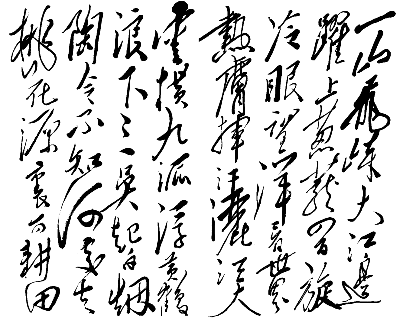 一山飛峙大江邊
躍上葱蘢四百旋
冷眼望洋看世界
熱膚揮汗灑江天
雲横九派浮黄鶴
浪下三吴起白烟
陶令不知何處去
桃花源裏可耕田